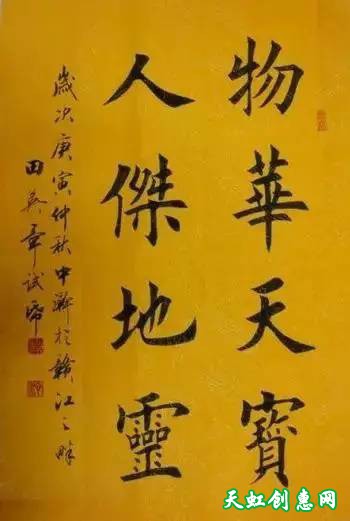 物華天寶
人傑地靈
歲次庚寅仲秋中澣於贛江之畔
田英章試
天虹创惠网